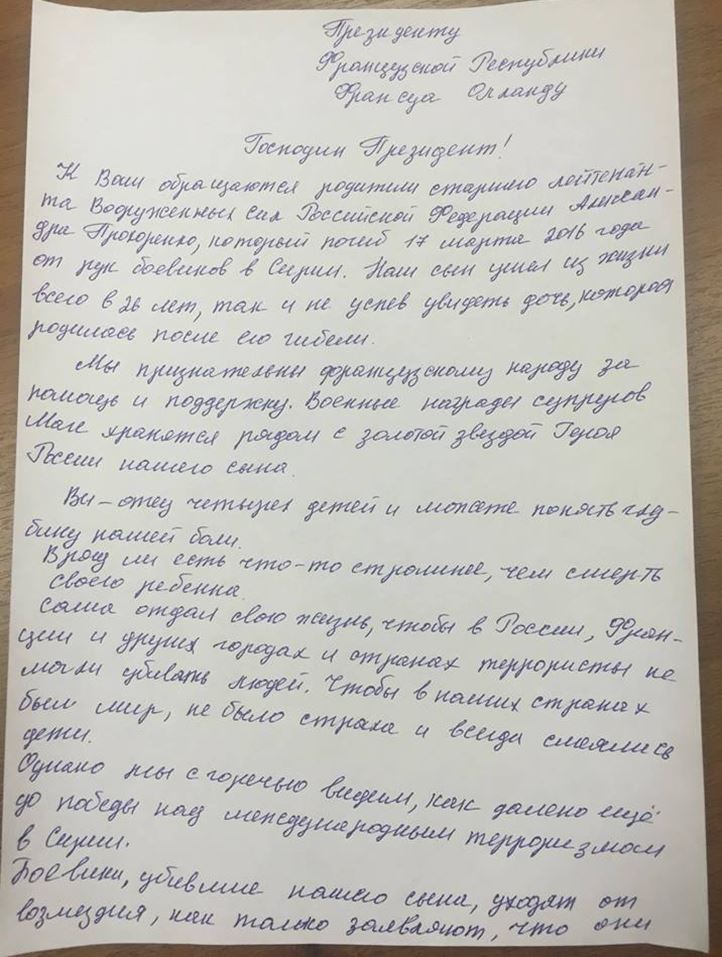 Президенту
Французской Республики
Франсуа Олланду
Господин Президент!
К Вам обращаются родители старшего лейтенан-
та Вооруженных Сил Российской Федерации Алексан-
дра Прохоренко, который погиб 17 марта 2016 года
от рук боевиков в Сирии. Наш сын ушел из жизни
всего в 26 лет, так и не успев увидеть дочь, которая
родилась после его гибели.
Мы признательны французскому народу за
помощь и поддержку. Военные награды супругов
Маге хранятся рядом с золотой звездой Героя
России нашего сына.
Вы – отец четырех детей и можете понять глу-
бину нашей боли.
Вряд ли есть что-то страшнее, чем смерть
своего ребенка.
Саша отдал свою жизнь, чтобы в России, Фран-
ции и других городах и странах террористы не
могли убивать людей. Чтобы в наших странах
был мир, не было страха и всегда смеялись
дети.
Однако мы с горечью видим, как далеко ещё
до победы над международным терроризмом
в Сирии.
Боевики, убившие нашего сына, уходят от
возмездия, как только заявляют, что они